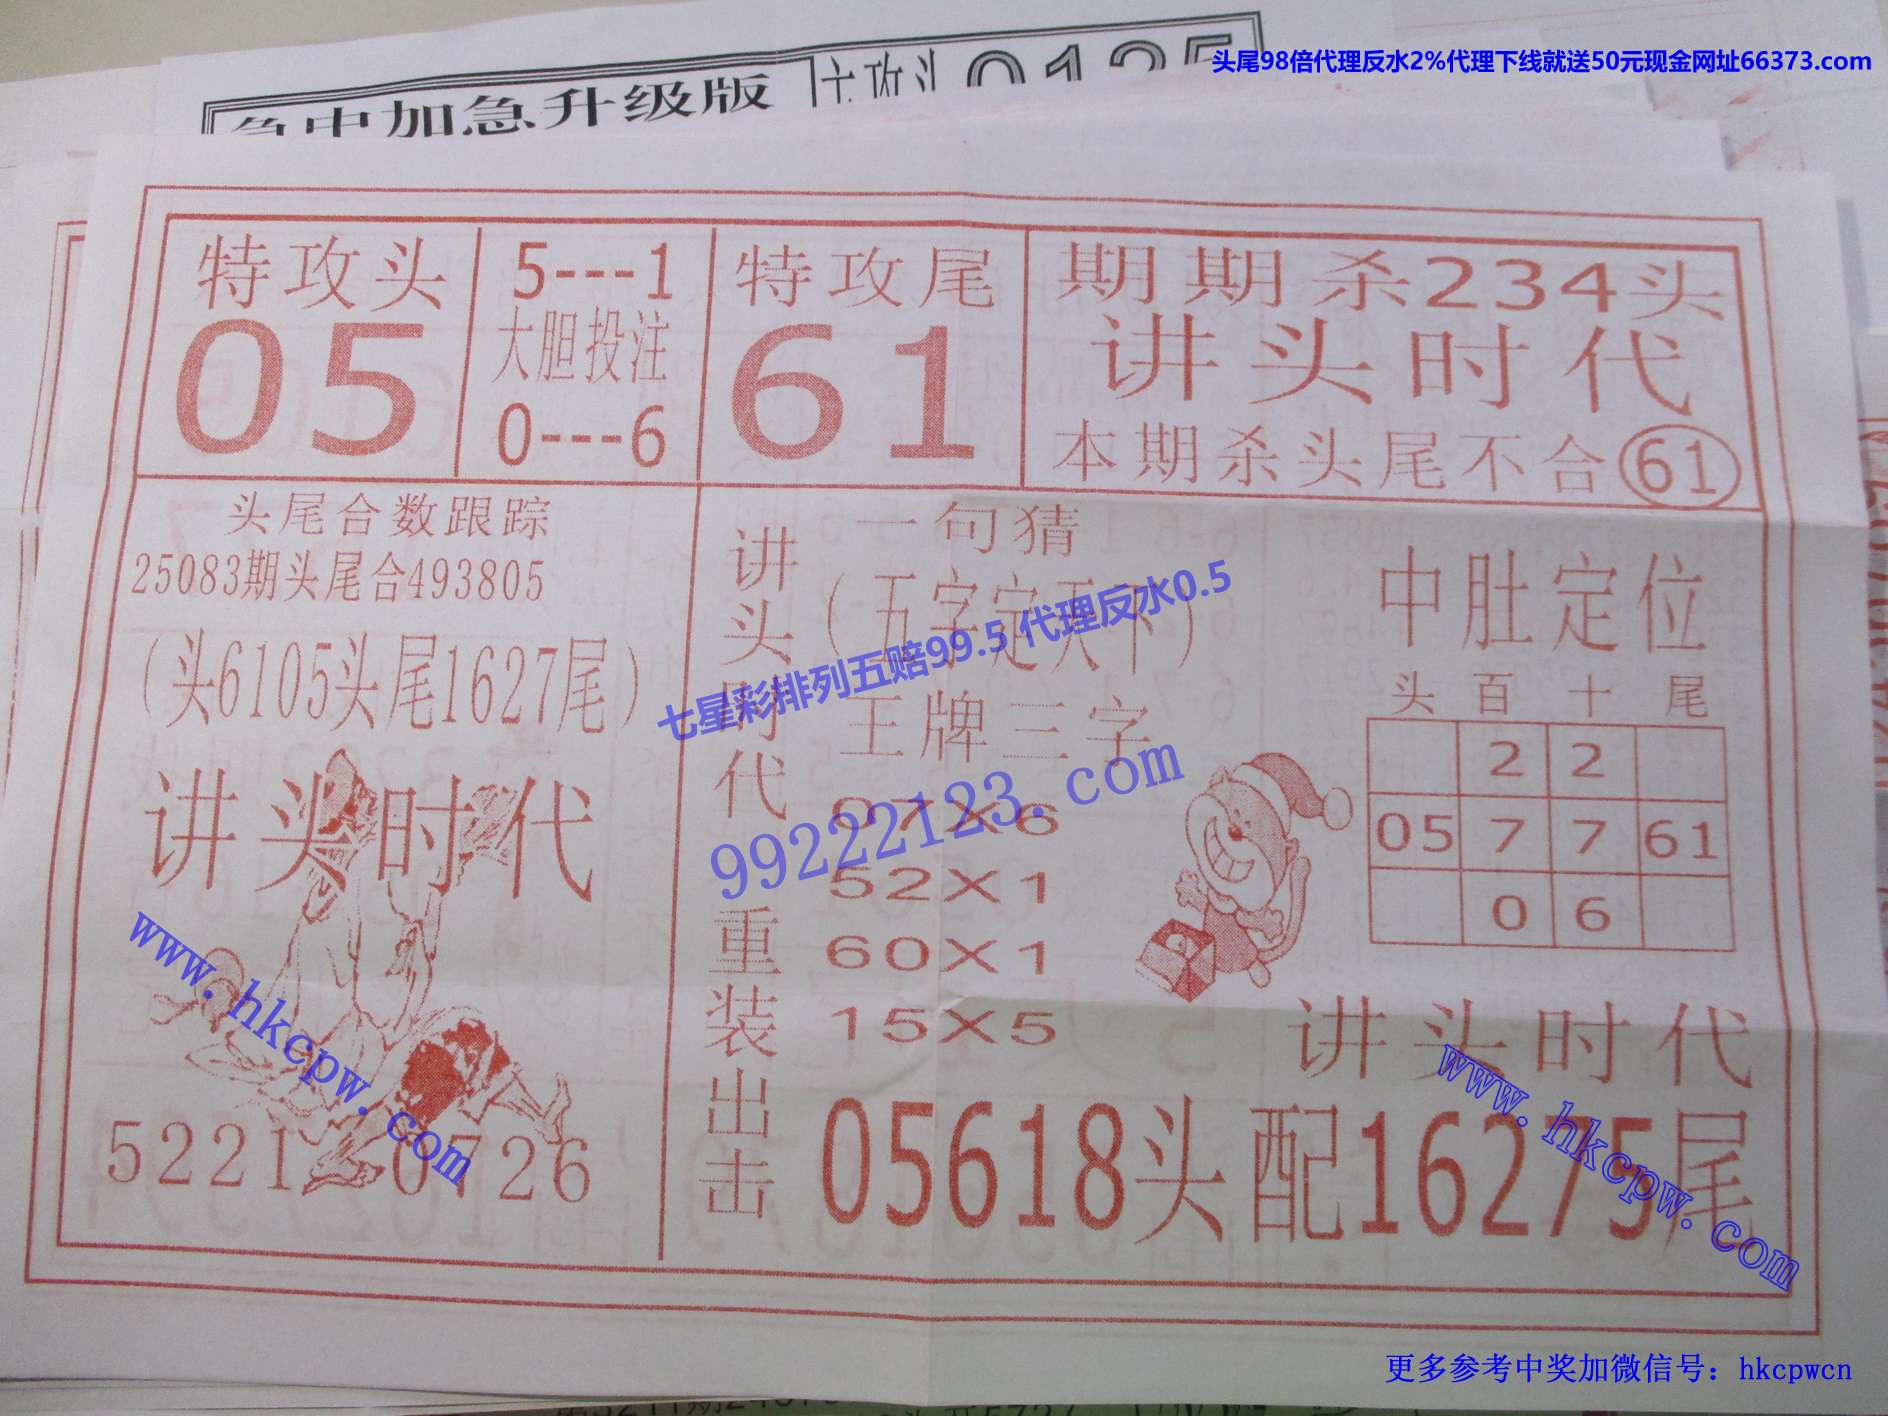 头尾98倍代理反水2%代理下线就送50元现金网址66373.com
加急升级版
特攻头
05
5---1
大胆投注
0---6
特攻尾
61
期期杀234头
讲头时代
本期杀头尾不合61
头尾合数跟踪
25083期头尾合493805
(头6105头尾1627尾)
讲头时代
5221 0726
讲头时代重装出击
一句猜
(五字定天下)
王牌三字
97X6
52X1
60X1
15X5
七星彩排列五赔99.5 代理反水0.5
99222123.com
中肚定位
头 百 十 尾
2 2
05 7 7 61
0 6
讲头时代
05618头配16275尾
www.hkcpw.com
www.hkcpw.com
更多参考中奖加微信号：hkcpwcn